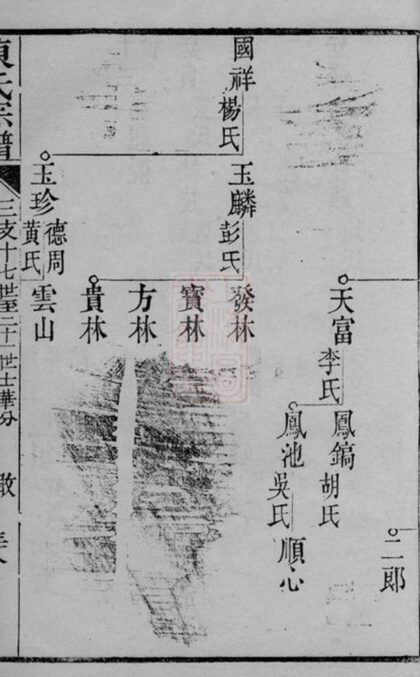 二郎
天富
李氏
鳳鎬
胡氏
鳳池
吳氏
順心
國祥
楊氏
玉麟
彭氏
發林
寳林
方林
貴林
玉珍
德周
黃氏
雲山
氏宗譜
三支十七世至二十一世士華分